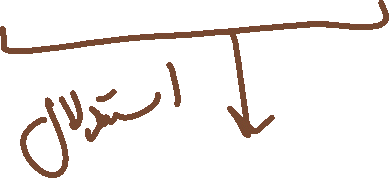 استدلال